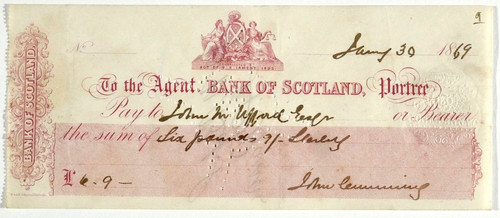 9
No
Jany 30 1869
BANK OF SCOTLAND
To the Agent. BANK OF SCOTLAND, Portree
Pay to John Mc Esqr or Bearer
the sum of Six pounds 9/- Sterling
£6.9-
John Cumming